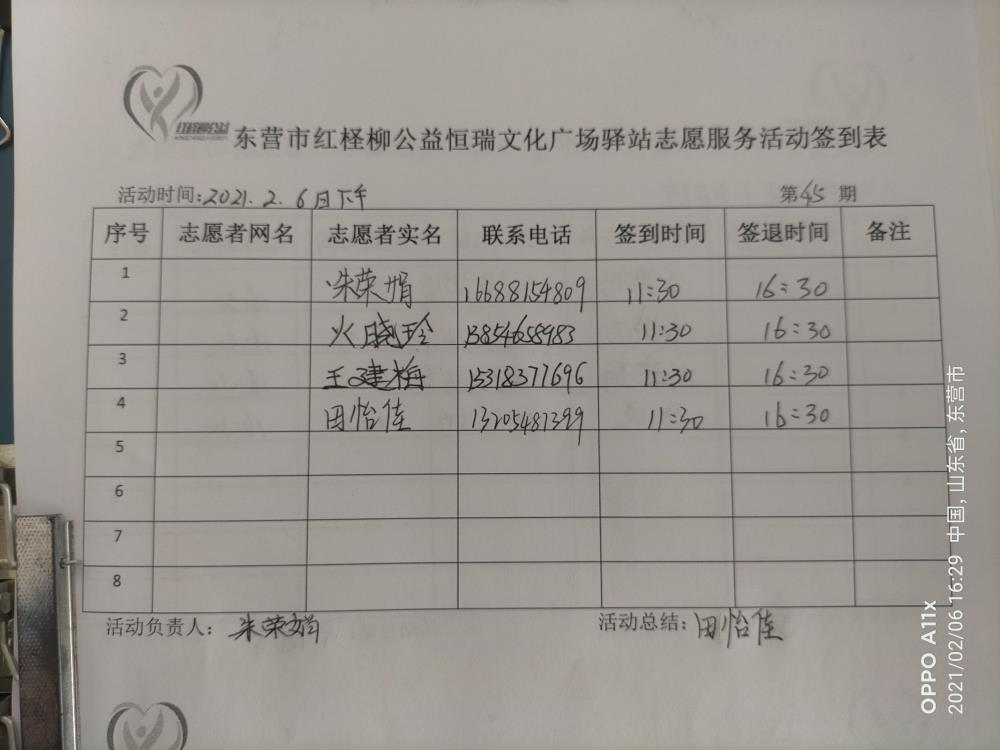 红柽柳公益
东营市红柽柳公益恒瑞文化广场驿站志愿服务活动签到表
活动时间:2021.2.6日下午 第45期
序号 志愿者网名 志愿者实名 联系电话 签到时间 签退时间 备注
1 朱荣娟 16688154809 11:30 16:30
2 火晓玲 13854658983 11:30 16:30
3 王建梅 15318377696 11:30 16:30
4 田怡佳 13205487399 11:30 16:30
5
6
7
8
活动负责人: 朱荣娟 活动总结: 田怡佳
OPPO A11x
2021/02/06 16:29 中国, 山东省, 东营市